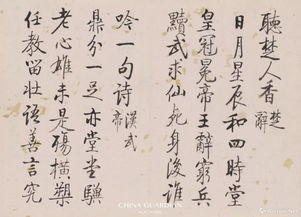 聽楚人香 楚辭
日月星辰和四時堂
皇冠冕帝王辭窮兵
黷武求仙死身後誰
吟一句詩 漢武帝
鼎分一足亦堂堂驥
老心雄未是殤橫槊
任教留壯語善言究
CHINA GUARDIAN